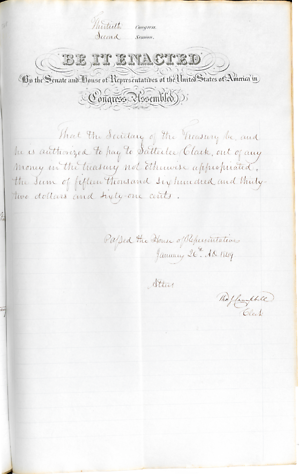 Thirtieth Congress
Second Session
BE IT ENACTED
By the Senate and House of Representatives of the United States of America in
Congress Assembled,
That the Secretary of the Treasury be, and
he is authorized to pay to Satterlee Clark, out of any
money in the treasury not otherwise appropriated,
the sum of fifteen thousand six hundred and thirty
two dollars and sixty-one cents.
Passed the House of Representatives
January 26th AD. 1849
Attest
Campbell
Clerk